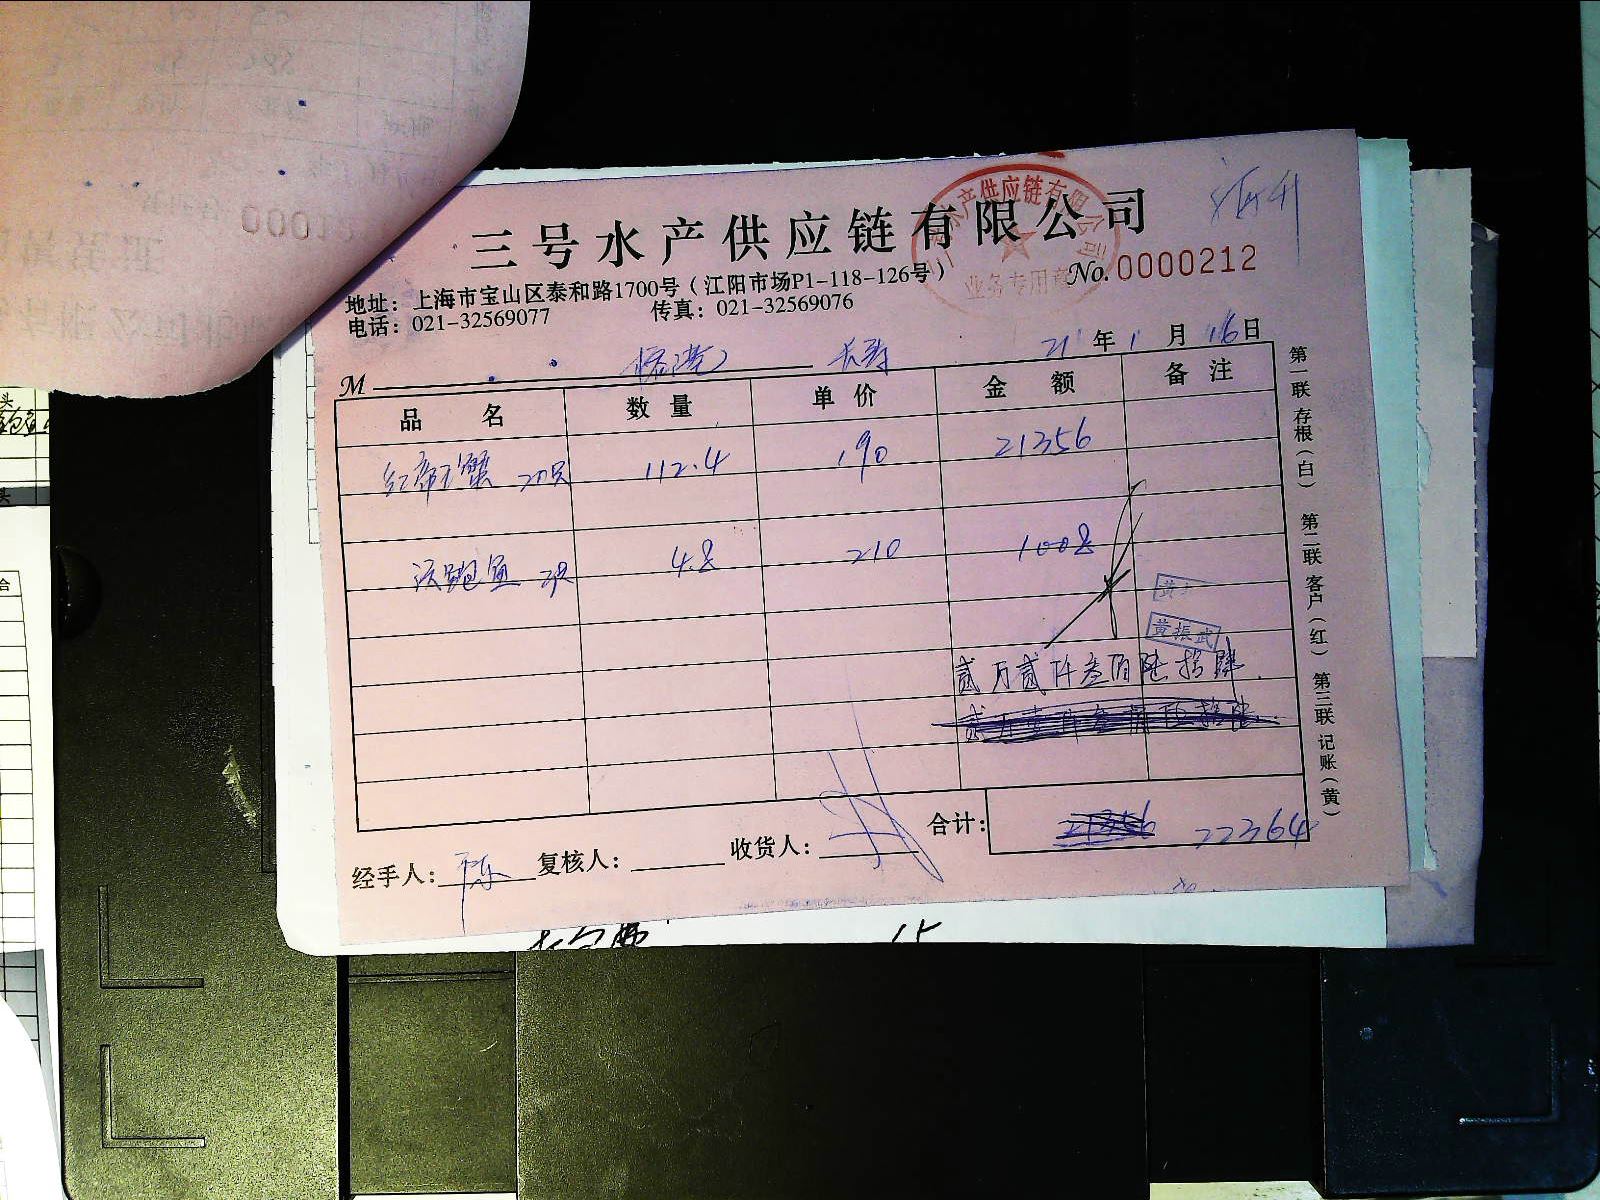 三号水产供应链有限公司
No. 0000212
地址：上海市宝山区泰和路1700号（江阳市场P1-118-126号）
电话：021-32569077 传真：021-32569076
水产供应链有限公司
业务专用章
21年1月16日
M 长寿
品名 数量 单价 金额 备注
红帝王蟹 112.4 190 21356
鲍鱼 4.8 210 1008
黄振武
贰万贰仟叁佰陆拾肆
合计： 21356 22364
经手人： 复核人： 收货人：
第一联 存根（白） 第二联 客户（红） 第三联 记账（黄）